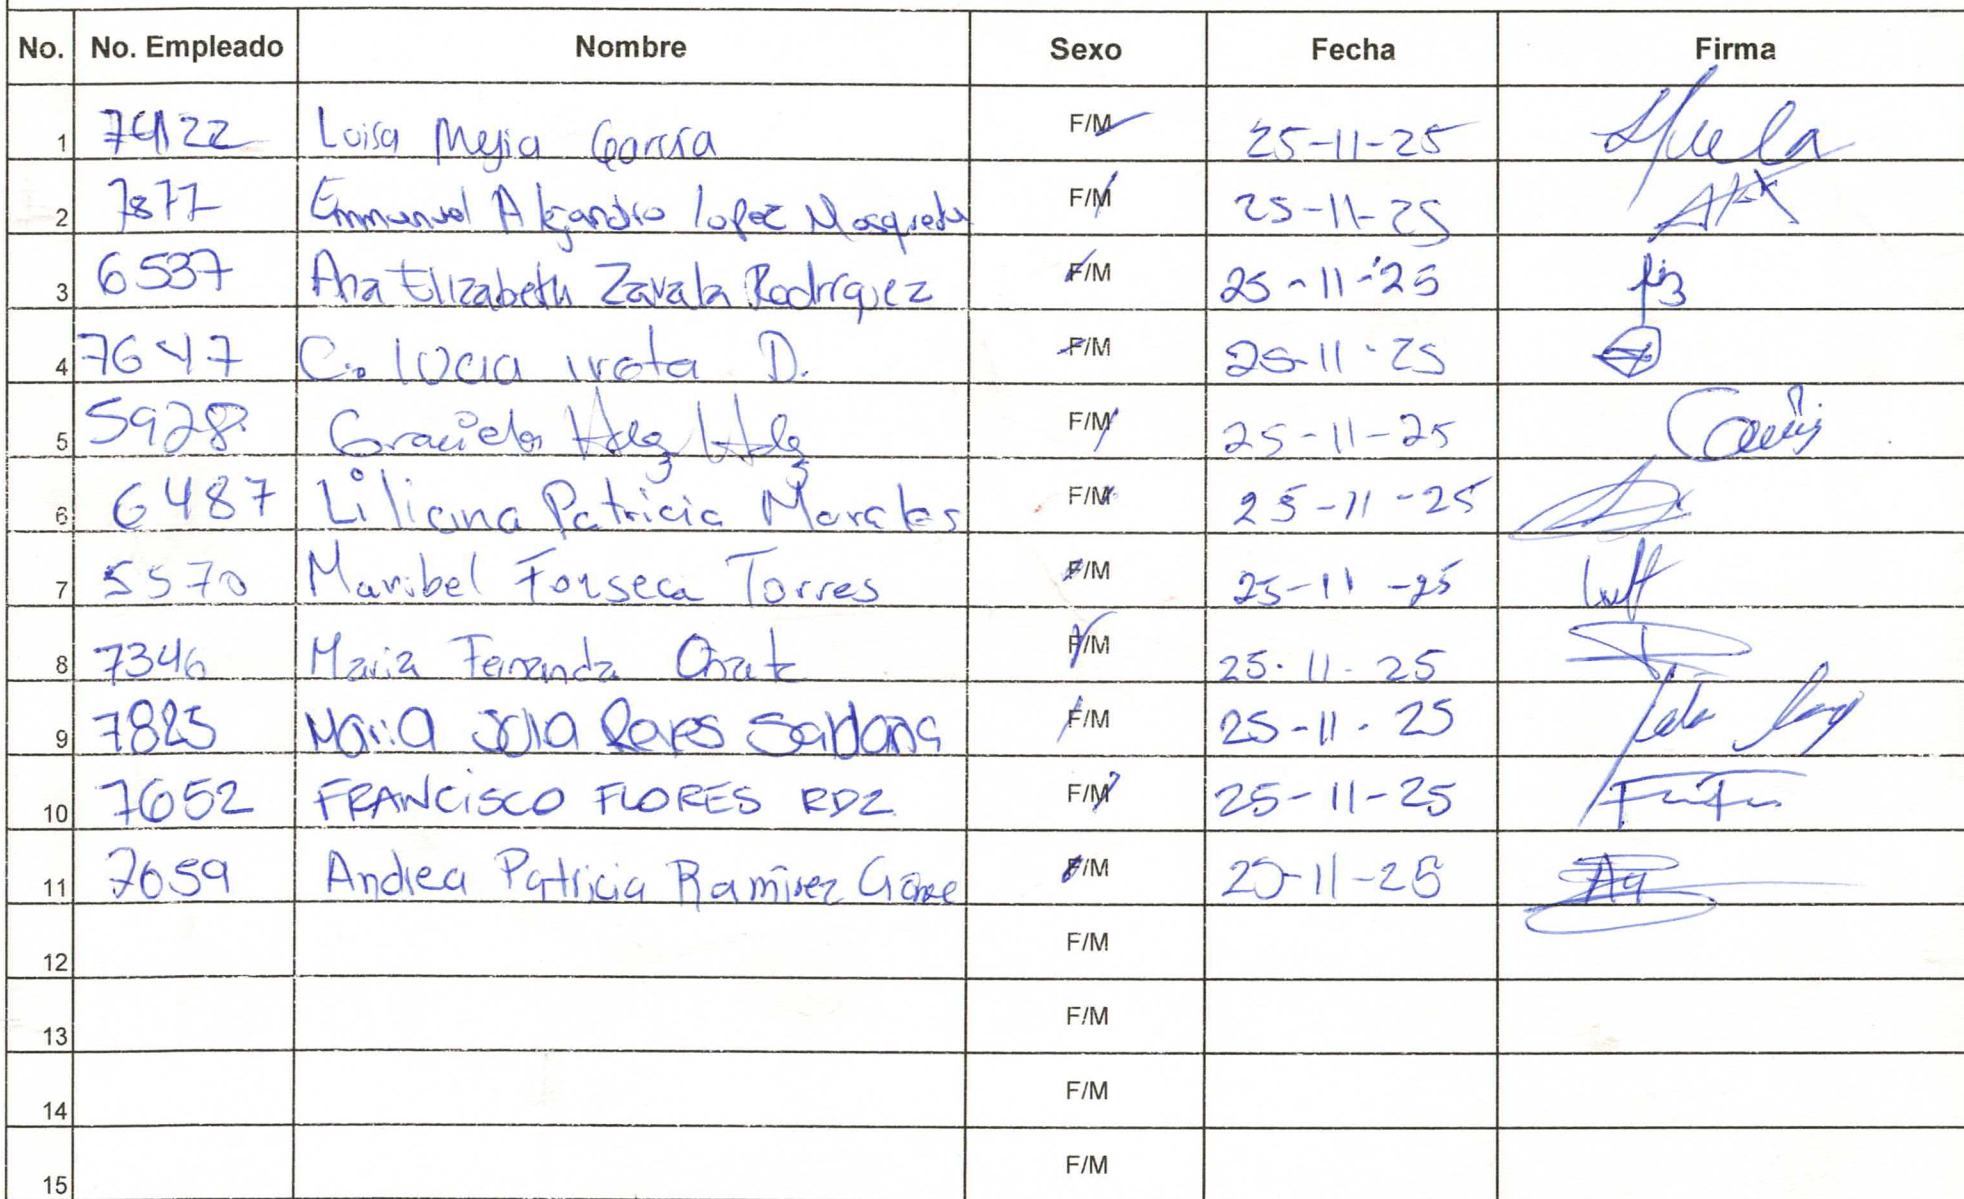 No. No. Empleado Nombre Sexo Fecha Firma
1 Luisa Mejia García F/M 25-11-25
2 7877 Emmanuel Alejandro lopez Mosqueda F/M 25-11-25
3 6537 Ana Elizabeth Zavala Rodríguez F/M 25-11-25
4 7647 C. lucia D. F/M 25-11-25
5 5928 Graciela Hdg Hdg F/M 25-11-25
6 6487 Liliana Patricia Morales F/M 25-11-25
7 5570 Maribel Fonseca Torres F/M 25-11-25
8 7346 Maria Fernanda F/M 25-11-25
9 7825 Maria F/M 25-11-25
10 7652 FRANCISCO FLORES RDZ F/M 25-11-25
11 7659 Andrea Patricia Ramirez F/M 25-11-25
12 F/M
13 F/M
14 F/M
15 F/M